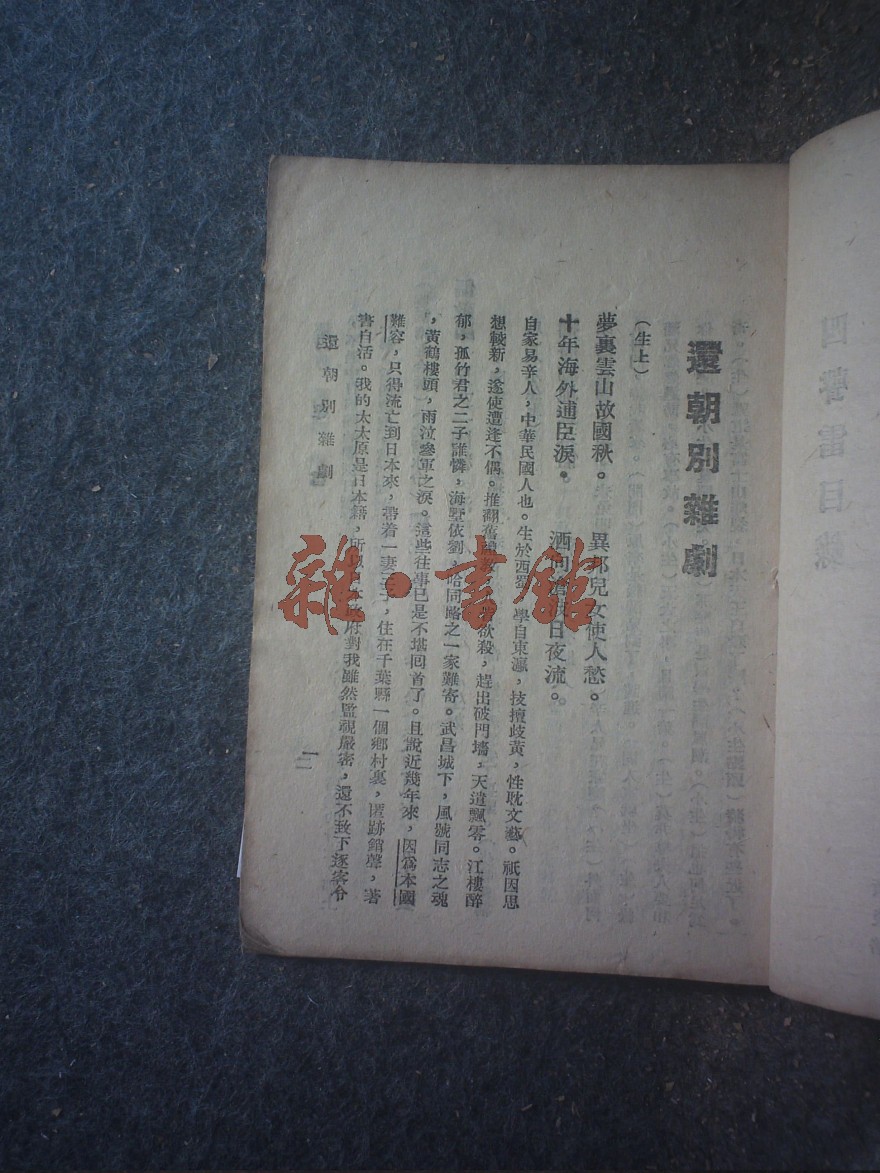 還朝別雜劇
（生上）
夢裏雲山故國秋。 異邦兒女使人愁。
十年海外逋臣淚。 洒向 日夜流。
自家易亲人，中華民國人也。生於西蜀，學自東瀛，技擅歧黃，性耽文藝。祇因思
想較新，遂使遭逢不偶。推翻舊 欲殺，趕出破門墻，天遣飄零。江樓醉
郁，孤竹君之二子誰憐，海墅依劉，哈同路之一家難寄。武昌城下，風號同志之魂
，黃鶴樓頭，雨泣參軍之淚。這些往事已是不堪回首了。且說近幾年來，因爲本國
難容，只得流亡到日本來，帶着一妻 子，住在千葉縣一個鄉村裏，匿跡銷聲，著
書自活。我的太太原是日本籍，所以日本政府對我雖然監視嚴密，還不致下逐客令
還朝別雜劇
一
四聲雷目錄
雜·書館